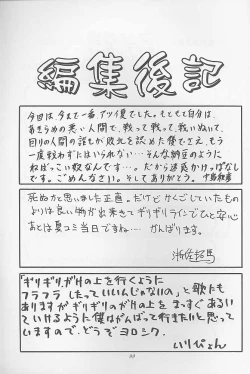 編集後記
今回は今まで一番アツイ夏でした。もともと自分は、
あきらめの悪い人間で、戦って戦って、戦いぬいて、
回りの人間の誰もが敗北を認めた際でさえ、もう
一度戦わずにはいられない…そんな納豆のように
ねばっこい奴なんで…。だから迷惑かけっぱなし
です。ごめんなさい。そしてありがとう。
死ぬかと思いました正直。だけどかくごしていたもの
よりは良い物が出来きてギリギリラインでひと安心
あとは夏コミ当日ですね… がんばります。
「ギリギリガケの上を行くように
フラフラしたっていいじゃないの」と歌にも
ありますがギリギリのガケの上をまっすぐあるい
ていけるように僕はがんばって行きたいと思って
いますので、どうぞヨロシク。
いりぴょん